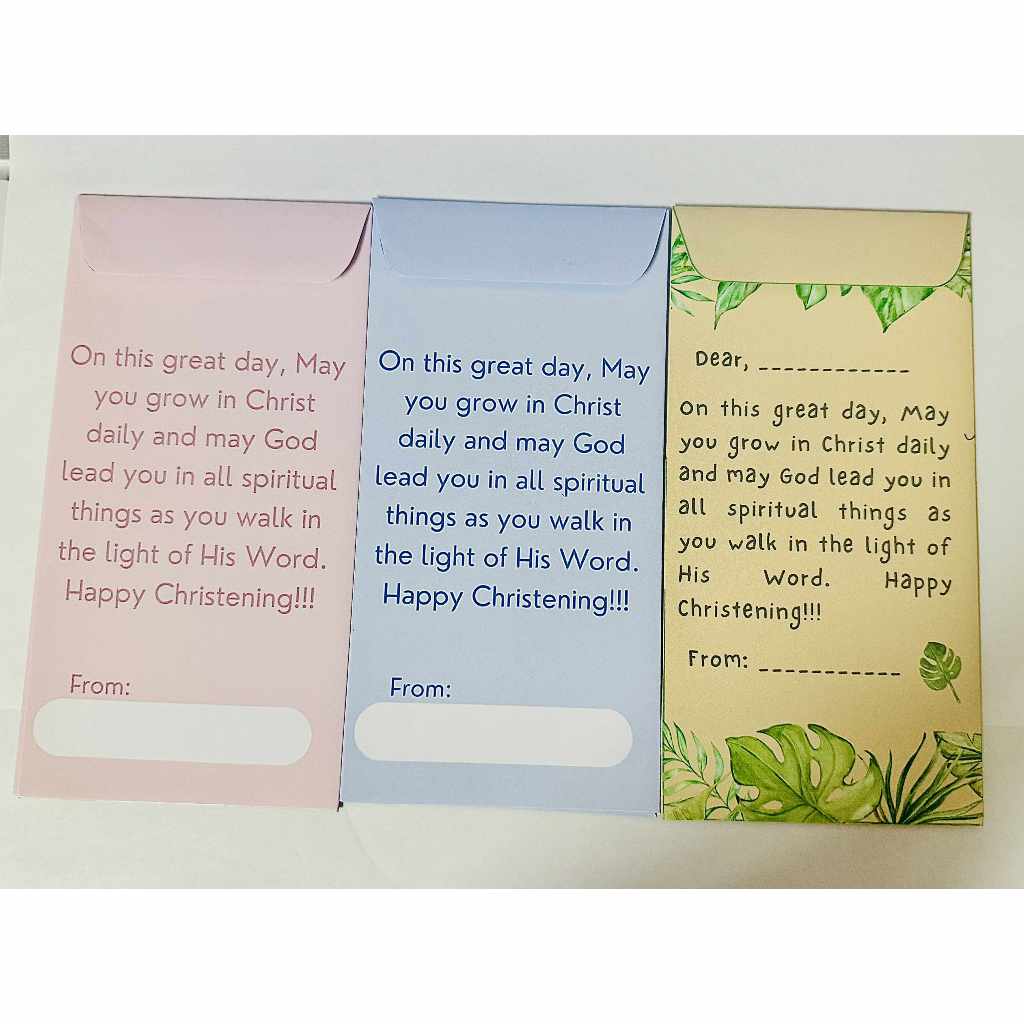 On this great day, May
you grow in Christ
daily and may God
lead you in all spiritual
things as you walk in
the light of His Word.
Happy Christening!!!
From:
On this great day, May
you grow in Christ
daily and may God
lead you in all spiritual
things as you walk in
the light of His Word.
Happy Christening!!!
From:
Dear, ____________
On this great day, May
you grow in Christ daily
and may God lead you in
all spiritual things as
you walk in the light of
His Word. Happy
Christening!!!
From: ___________